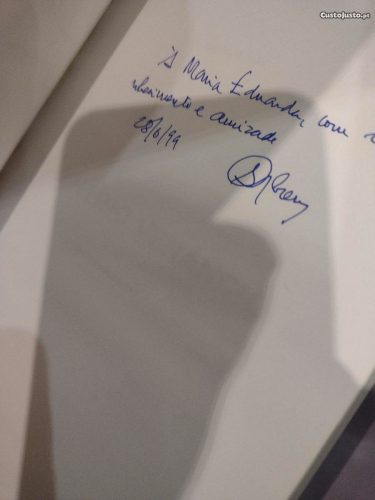 CustoJusto.pt
À Maria Eduarda, com
e amizade
28/6/99